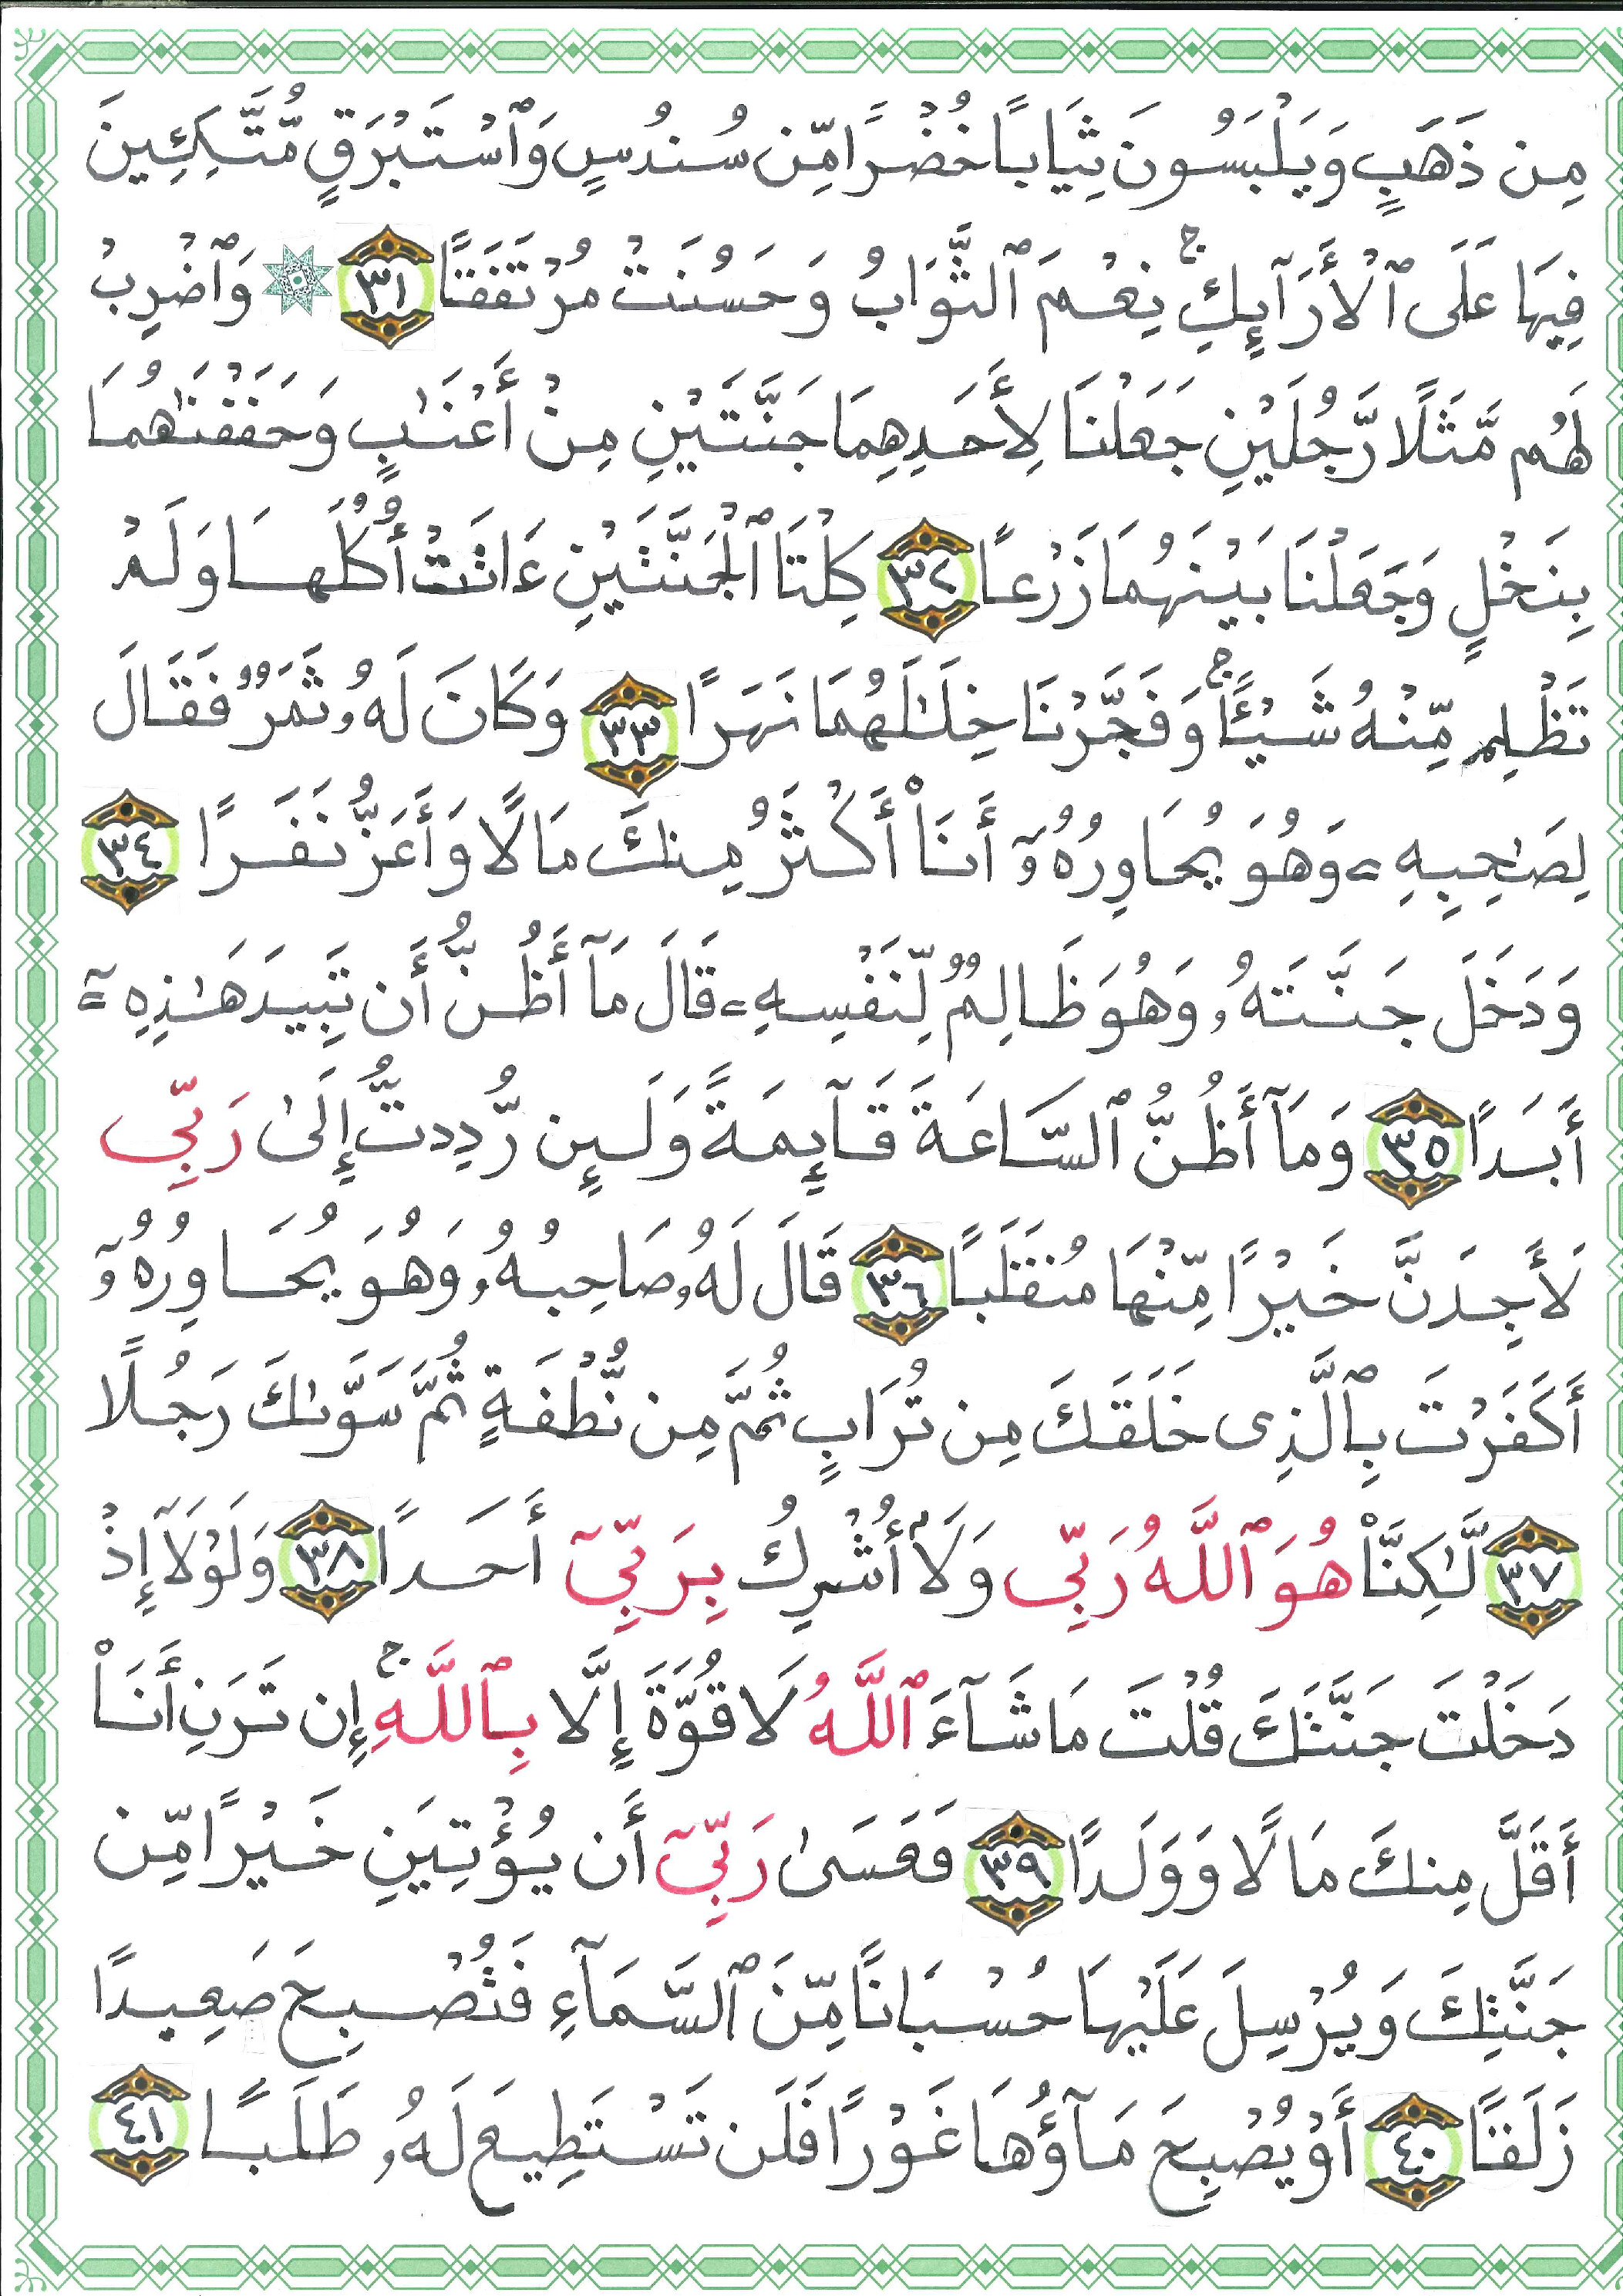 مِن ذَهَبٍ وَيَلْبَسُونَ ثِيَابًا خُضْرًا مِّن سُندُسٍ وَٱسْتَبْرَقٍ مُّتَّكِـِٔينَ
فِيهَا عَلَى ٱلْأَرَآئِكِ ۚ نِعْمَ ٱلثَّوَابُ وَحَسُنَتْ مُرْتَفَقًا ٣١ ۞ وَٱضْرِبْ
لَهُم مَّثَلًا رَّجُلَيْنِ جَعَلْنَا لِأَحَدِهِمَا جَنَّتَيْنِ مِنْ أَعْنَٰبٍ وَحَفَفْنَٰهُمَا
بِنَخْلٍ وَجَعَلْنَا بَيْنَهُمَا زَرْعًا ٣٢ كِلْتَا ٱلْجَنَّتَيْنِ ءَاتَتْ أُكُلَهَا وَلَمْ
تَظْلِم مِّنْهُ شَيْـًٔا ۚ وَفَجَّرْنَا خِلَٰلَهُمَا نَهَرًا ٣٣ وَكَانَ لَهُۥ ثَمَرٌ فَقَالَ
لِصَٰحِبِهِۦ وَهُوَ يُحَاوِرُهُۥٓ أَنَا۠ أَكْثَرُ مِنكَ مَالًا وَأَعَزُّ نَفَرًا ٣٤
وَدَخَلَ جَنَّتَهُۥ وَهُوَ ظَالِمٌ لِّنَفْسِهِۦ قَالَ مَآ أَظُنُّ أَن تَبِيدَ هَٰذِهِۦٓ
أَبَدًا ٣٥ وَمَآ أَظُنُّ ٱلسَّاعَةَ قَآئِمَةً وَلَئِن رُّدِدتُّ إِلَىٰ رَبِّى
لَأَجِدَنَّ خَيْرًا مِّنْهَا مُنقَلَبًا ٣٦ قَالَ لَهُۥ صَاحِبُهُۥ وَهُوَ يُحَاوِرُهُۥٓ
أَكَفَرْتَ بِٱلَّذِى خَلَقَكَ مِن تُرَابٍ ثُمَّ مِن نُّطْفَةٍ ثُمَّ سَوَّىٰكَ رَجُلًا
٣٧ لَّٰكِنَّا۠ هُوَ ٱللَّهُ رَبِّى وَلَآ أُشْرِكُ بِرَبِّىٓ أَحَدًا ٣٨ وَلَوْلَآ إِذْ
دَخَلْتَ جَنَّتَكَ قُلْتَ مَا شَآءَ ٱللَّهُ لَا قُوَّةَ إِلَّا بِٱللَّهِ ۚ إِن تَرَنِ أَنَا۠
أَقَلَّ مِنكَ مَالًا وَوَلَدًا ٣٩ فَعَسَىٰ رَبِّىٓ أَن يُؤْتِيَنِ خَيْرًا مِّن
جَنَّتِكَ وَيُرْسِلَ عَلَيْهَا حُسْبَانًا مِّنَ ٱلسَّمَآءِ فَتُصْبِحَ صَعِيدًا
زَلَقًا ٤٠ أَوْ يُصْبِحَ مَآؤُهَا غَوْرًا فَلَن تَسْتَطِيعَ لَهُۥ طَلَبًا ٤١